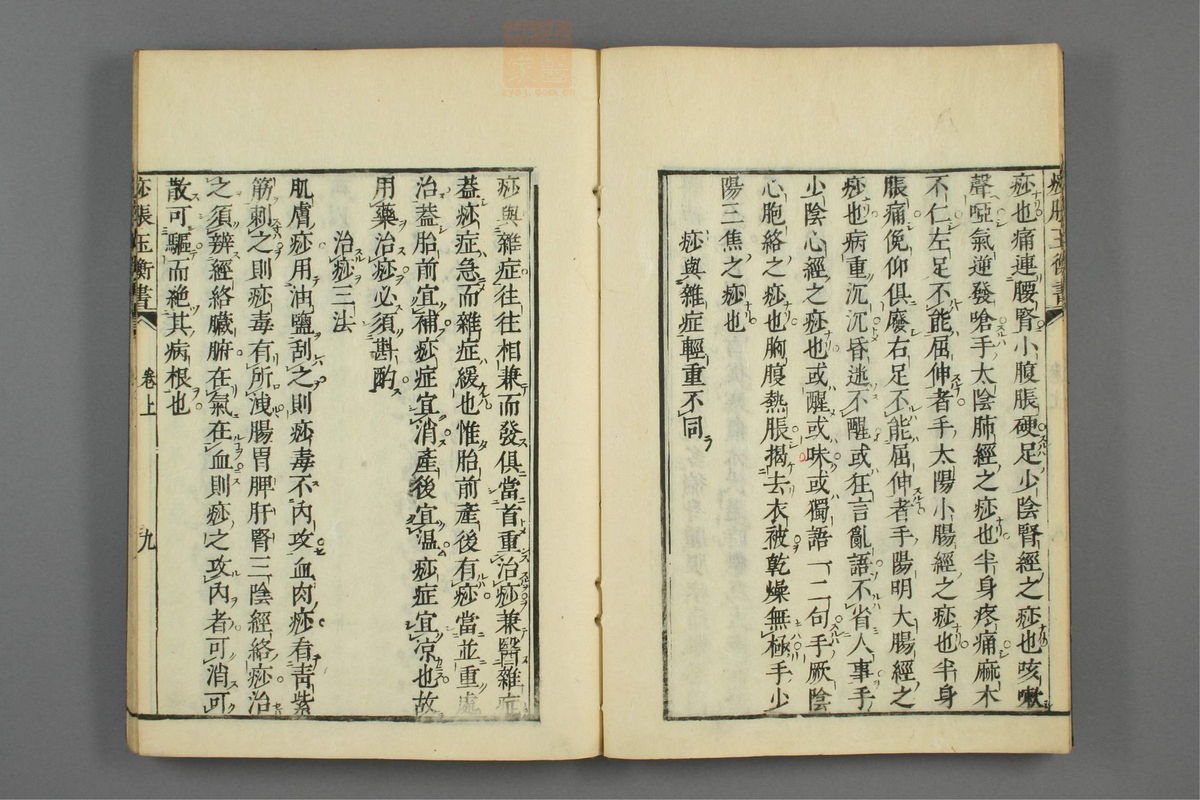 痧也痛連腰腎小腹脹硬足少陰腎經之痧也咳嗽
聲啞氣逆發嗆手太陰肺經之痧也半身疼痛麻木
不仁左足不能屈伸者手太陽小腸經之痧也半身
脹痛俛仰俱廢右足不能屈伸者手陽明大腸經之
痧也病重沉沉昏迷不醒或狂言亂語不省人事手
少陰心經之痧也或醒或昧或獨語一二句手厥陰
心胞絡之痧也胸腹熱脹揭去衣被乾燥無極手少
陽三焦之痧也
痧與雜症輕重不同
痧與雜症往往相兼而發俱當首重治痧兼醫雜症
蓋痧症急而雜症緩也惟胎前產後有痧當並重處
治蓋胎前宜補痧症宜消產後宜温痧症宜凉也故
用藥治痧必須斟酌
治痧三法
肌膚痧用油鹽刮之則痧毒不內攻血肉痧看青紫
筋刺之則痧毒有所洩腸胃脾肝腎三陰經絡痧治
之須辨經絡臟腑在氣在血則痧之攻內者可消可
散可驅而絶其病根也
痧脹玉衡書
卷上
九